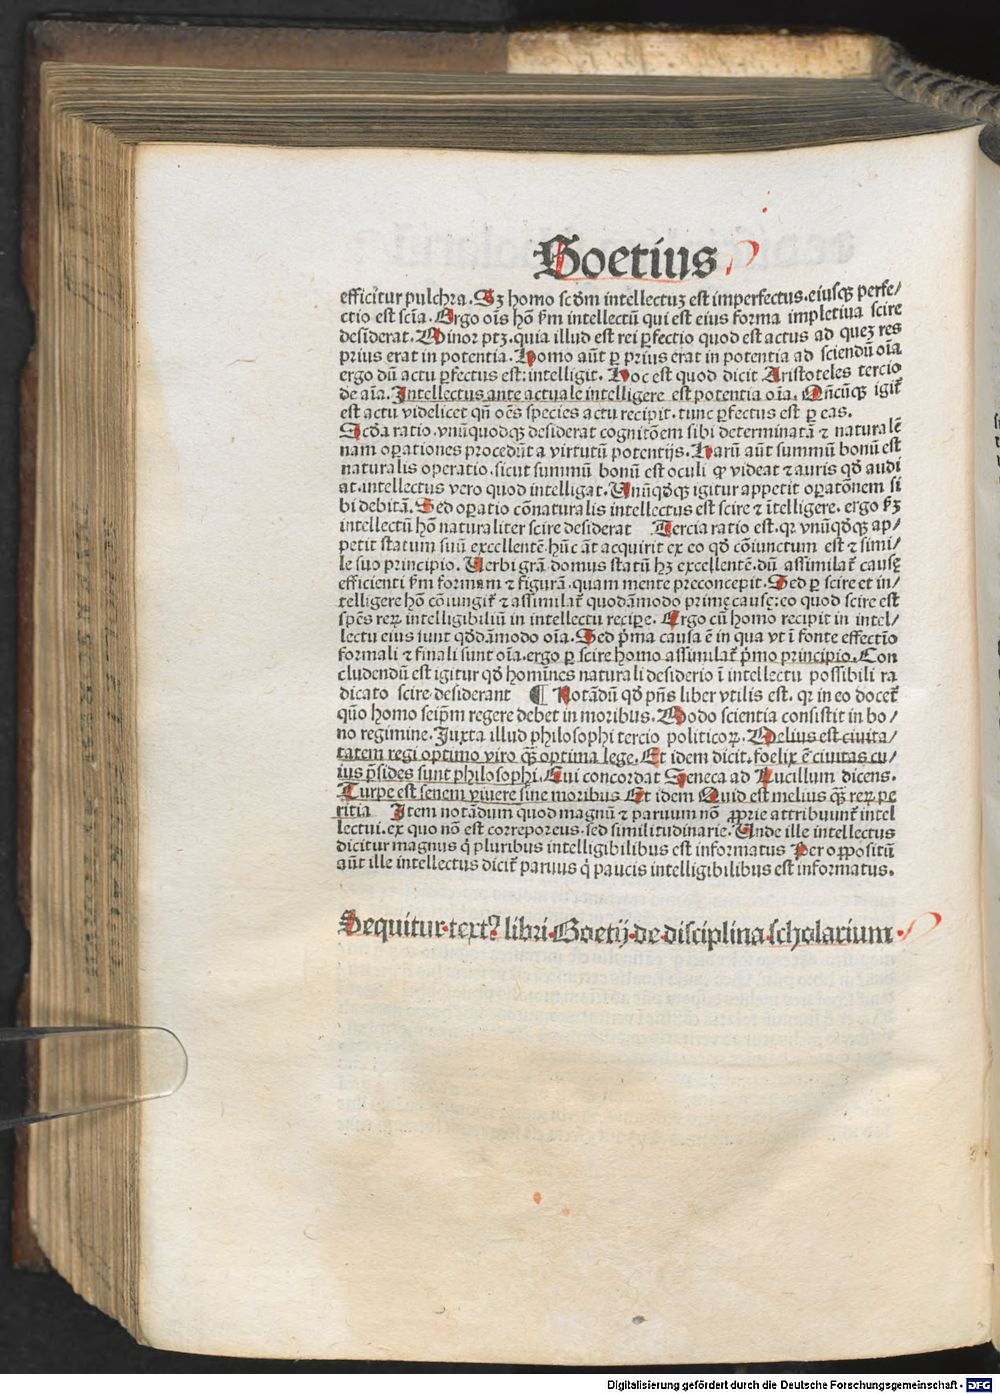 Boetius
efficitur pulchra. Sꝫ homo scd̄m intellectuꝫ est imperfectus. eiusqꝫ perfe/
ctio est scīa. Ergo oīs hō ẜm intellectū qui est eius forma impletiua scire
desiderat. Minor ptꝫ. quia illud est rei ꝑfectio quod est actus ad queꝫ res
prius erat in potentia. Homo aūt ꝑ prius erat in potentia ad sciendū oīa
ergo dū actu ꝑfectus est: intelligit. Hoc est quod dicit Aristoteles tercio
de aīa. Intellectus ante actuale intelligere est potentia oīa. Qn̄cūqꝫ igit̄
est actu videlicet qn̄ oēs species actu recipit. tunc ꝑfectus est ꝑ eas.
Scd̄a ratio. vnūquodqꝫ desiderat cognitōem sibi determinatā ⁊ naturalē
nam oꝑationes procedūt a virtutū potentijs. Harū aūt summū bonū est
naturalis operatio. sicut summū bonū est oculi ꝙ videat ⁊ auris qd̄ audi
at. intellectus vero quod intelligat. Unūqd̄qꝫ igitur appetit oꝑatōnem si
bi debitā. Sed oꝑatio cōnaturalis intellectus est scire ⁊ ītelligere. ergo ẜꝫ
intellectū hō naturaliter scire desiderat Tercia ratio est. qꝛ vnūqd̄qꝫ ap/
petit statum suū excellentē hūc āt acquirit ex eo qd̄ cōiunctum est ⁊ simi/
le suo principio. Uerbi grā domus statū hꝫ excellentē. dū assimilat̄ cause
efficienti ẜm formam ⁊ figurā. quam mente preconcepit. Sed ꝑ scire et in/
telligere hō cōiungit̄ ⁊ assimilat̄ quodāmodo prime cause: eo quod scire est
spēs reꝝ intelligibiliū in intellectu recipe. Ergo cū homo recipit in intel/
lectu eius sunt qd̄dāmodo oīa. Sed p̄ma causa ē in qua vt ī fonte effectīo
formali ⁊ finali sunt oīa. ergo ꝑ scire homo assimilat̄ p̄mo principio. Con
cludendū est igitur qd̄ homines naturali desiderio ī intellectu possibili ra
dicato scire desiderant ¶ Notādū qd̄ pn̄s liber vtilis est. qꝛ in eo docet̄
quō homo seip̄m regere debet in moribus. Modo scientia consistit in bo/
no regimine. Juxta illud philosophi tercio politicoꝝ. Melius est ciuita/
tatem regi optimo viro qꝫ̄ optima lege. Et idem dicit. foelix ē ciuitas cu/
ius p̄sides sunt philosophi. Cui concordat Seneca ad Lucillum dicens.
Turpe est senem viuere sine moribus Et idem Quid est melius qꝫ̄ reꝝ pe
ritia Item notādum quod magnū ⁊ paruum nō ꝓprie attribuunt̄ intel
lectui. ex quo nō est correporeus. sed similitudinarie. Unde ille intellectus
dicitur magnus q̇ pluribus intelligibilibus est informatus Per oꝓpositū
aūt ille intellectus dicit̄ paruus q̇ paucis intelligibilibus est informatus.
Sequitur text⁹ libri Boetij de disciplina scholarium.
Digitalisierung gefördert durch die Deutsche Forschungsgemeinschaft - DFG